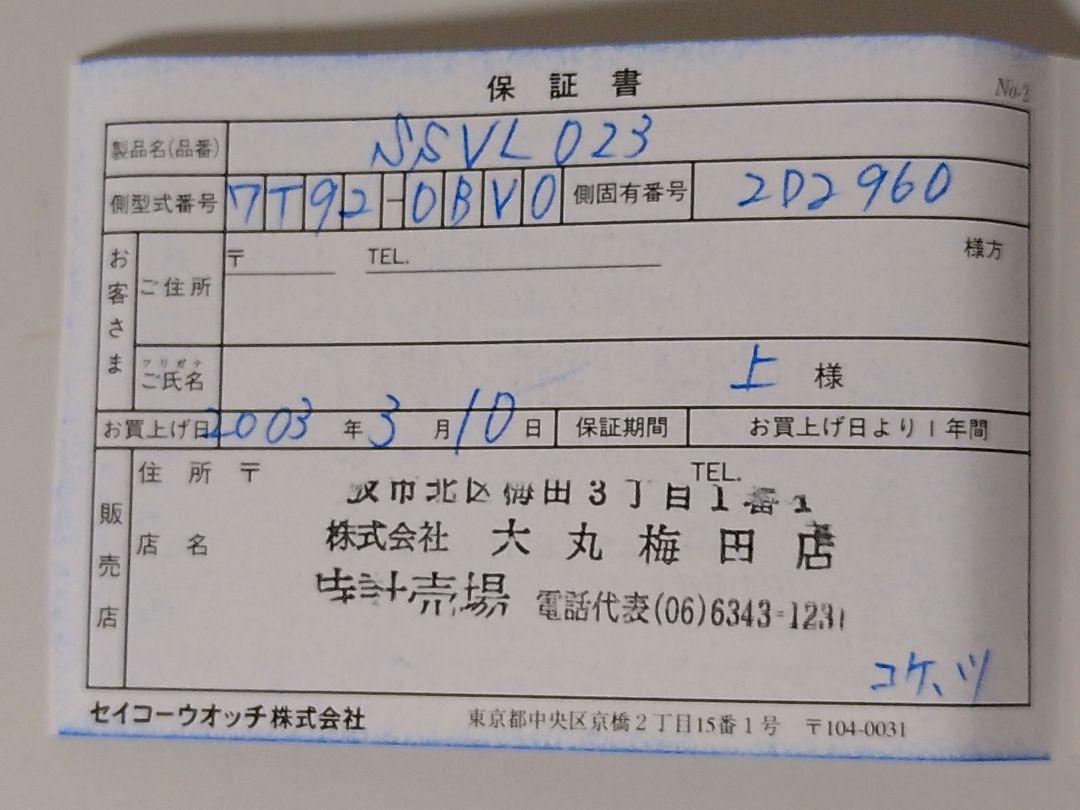 保証書
No.2
製品名(品番) SSVL023
側型式番号 7T92-0BV0 側固有番号 2D2960
お客さま
ご住所 〒 TEL. 様方
フリガナ
ご氏名 上 様
お買上げ日 2003年3月10日 保証期間 お買上げ日より1年間
販売店
住所 〒 TEL.
阪市北区梅田3丁目1番1
店名 株式会社 大丸梅田店
時計売場 電話代表(06)6343-1231
セイコーウオッチ株式会社 東京都中央区京橋2丁目15番1号 〒104-0031